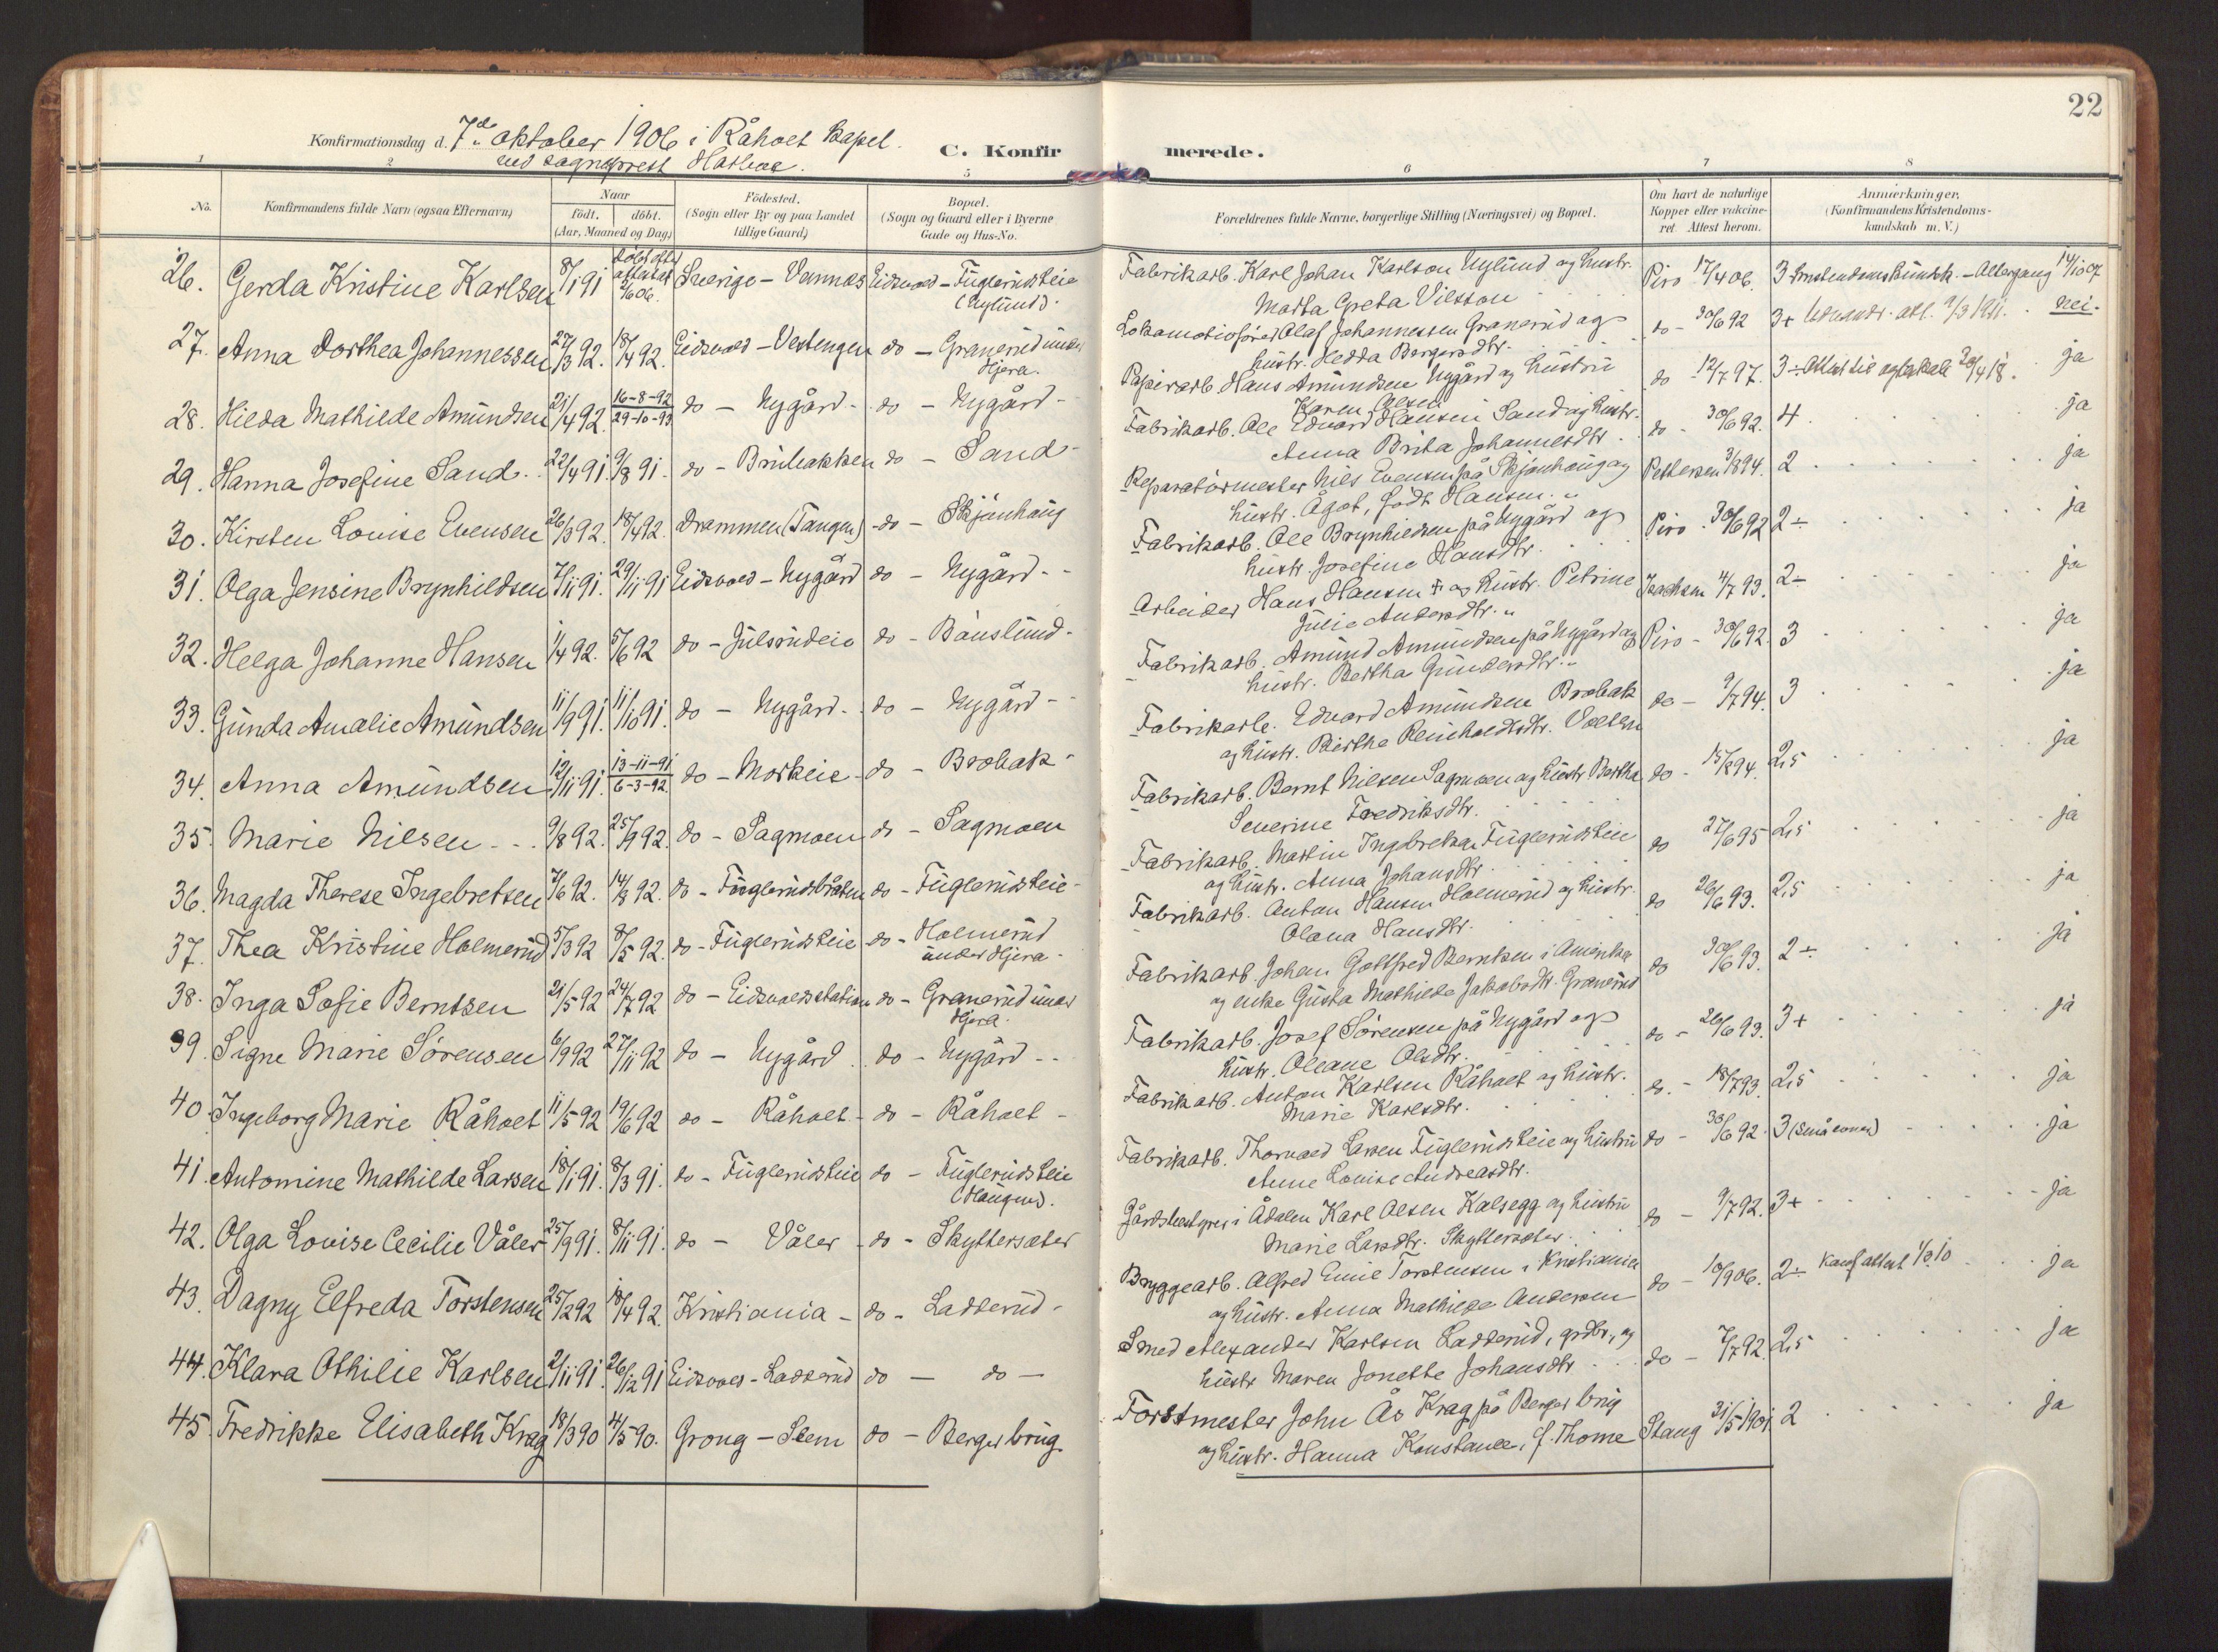 22
Konfirmationsdag d. 7de oktober 1906 i Råholt kapel.
ved sogneprest
C. Konfirmerede.
1 2 5 6 7 8
No. Konfirmandens fulde Navn (ogsaa Efternavn) Naar födt. döbt. (Aar, Maaned og Dag.) Födested. (Sogn eller By og paa Landet tillige Gaard) Bopæl. (Sogn og Gaard eller i Byerne Gade og Hus-No. Forældrenes fulde Navne, borgerlige Stilling (Næringsvei) og Bopæl. Om havt de naturlige Kopper eller vakcineret. Attest herom. Anmærkninger. (Konfirmandens Kristendomskundskab m. V.)
26. Gerda Kristine Karlsen 8/1 91 døbt efter attest Sverige - Vannäs Eidsvold - Fuglerudseie (Nylund). Fabrikarb. Karl Johan Karlson Nylund og hustr. Marta Greta Vilsson Piro 17/4 06. 3 - Altergang 14/10 07
27. Anna Dorthea Johannessen 27/3 92. 18/4 92. Eidsvold - Vestengen do - Granerud under Hjera. Lokomotivfører Olaf Johannessen Granerud og hustr. Hedda Bergersdtr. do - 30/6 92 3+ att. 9/3 1911. nei.
28. Hilda Mathilde Amundsen 21/4 92. 16-8-92 29-10-93 do - Nygård - do - Nygård - Papirarb. Hans Amundsen Nygård og hustru Karen Olsen do - 12/7 97. 3 ÷ 20/4 18. ja
29. Hanna Josefine Sand. 22/4 91. 9/8 91. do - Brubakken do - Sand - Fabrikarb. Ole Edvard Hansen Sand og hustr. Anna Brita Johannesdtr. do - 30/6 92. 4 ja
30. Kirsten Louise Evensen 26/3 92. 18/4 92. Drammen (Tangen) - do - Skjønhaug Reparatørmester Nils Evensen på Skjønhaug og hustr. Ågot, født Hansen. Pettersen 3/8 94. 2 ja
31. Olga Jensine Brynhildsen 7/11 91. 29/11 91 Eidsvold - Nygård do - Nygård - - Fabrikarb. Ole Brynhildsen på Nygård og hustr. Josefine Hansdtr. Piro - 30/6 92 2 ÷ ja
32. Helga Johanne Hansen 1/4 92. 5/6 92 do - Julsrudeie do - Bånslund - Arbeider Hans Hansen † og hustr. Petrine Julie Andersdtr. Isachsen 4/7 93. 2 ÷ ja
33. Gunda Amalie Amundsen 11/9 91. 11/10 91. do - Nygård - do - Nygård - Fabrikarb. Amund Amundsen på Nygård og hustr. Bertha Gundersdtr. Piro - 30/6 92. 3 ja
34. Anna Amundsen 12/11 91. 13-11-91 6-3-92. do - Morkeie - do - Brobak - Fabrikarb. Edvard Amundsen Brobak og hustr. Birthe Reinholdtsdtr. do - 9/7 94. 3 ja
35. Marie Nilsen 9/8 92. 25/9 92. do - Sagmoen do - Sagmoen Fabrikarb. Bernt Nilsen Sagmoen og hustr. Bertha Severine Fredriksdtr. do - 94. 2,5 ja
36. Magda Therese Ingebretsen 7/6 92. 14/8 92. do - Fuglerudbråten do - Fuglerudseie - Fabrikarb. Martin Ingebretsen Fuglerudseie og hustr. Anna Johansdtr. do 27/6 95 2,5 ja
37. Thea Kristine Holmerud 5/3 92 8/5 92. do - Fuglerudseie do - Holmerud under Hjera - Fabrikarb. Anton Hansen Holmerud og hustr. Olava Hansdtr. do 26/6 93. 2,5 ja
38. Inga Sofie Berntsen 21/5 92 24/7 92 do - Eidsvold station do - Granerud under Hjera. Fabrikarb. Johan Gottfred Berntsen i Amerika og enke Gusta Mathilde Jakobsdtr. Granerud do 30/6 93. 2 ÷ ja
39. Signe Marie Sørensen 6/9 92 27/11 92 do - Nygård do - Nygård - - Fabrikarb. Josef Sørensen på Nygård og hustr. Oleane Olsdtr. do - 26/6 93. 3+ ja
40. Ingeborg Marie Råholt 11/5 92 19/6 92 do - Råholt - do - Råholt - Fabrikarb. Anton Karlsen Råholt og hustr. Marie Karlsdtr. do. - 18/7 93. 2,5 ja
41. Antomine Mathilde Larsen 18/1 91. 8/3 91. do - Fuglerudseie do - Fuglerudseie (Haugen). Fabrikarb. Thorvald Larsen Fuglerudseie og hustru Anne Louise Andreasdtr. do - 30/6 92. 3 ja
42. Olga Lovise Cecilie Våler 25/9 91. 8/11 91. do - Våler - do - Skyttersæter Gårdsbestyrer i Ådalen Karl Olsen Kalsegg og hustru Marie Larsdtr. Skyttersæter. do - 9/7 92. 3+ ja
43. Dagny Elfreda Torstensen 25/2 92 18/4 92. Kristiania - do - Ladderud - Bryggearb. Alfred Emil Torstensen i Kristiania og hustr. Anna Mathilde Andersen do - 10/9 06. 2 ÷ Konf attest 1/3 10 ja
44. Klara Othilie Karlsen 2/11 91. 26/12 91 Eidsvold - Ladderud do - do - Smed Alexander Karlsen Ladderud, grdbr., og hustr Maren Jonette Johansdtr do - 7/7 92. 2,5 ja
45. Fredrikke Elisabeth Krag 18/3 90 4/5 90. Grong - Seem do - Berger brug. Forstmester John Ås Krag på Berger brug og hustr. Hanna Konstance, f. Thome Stang 31/5 1901. 2 ja